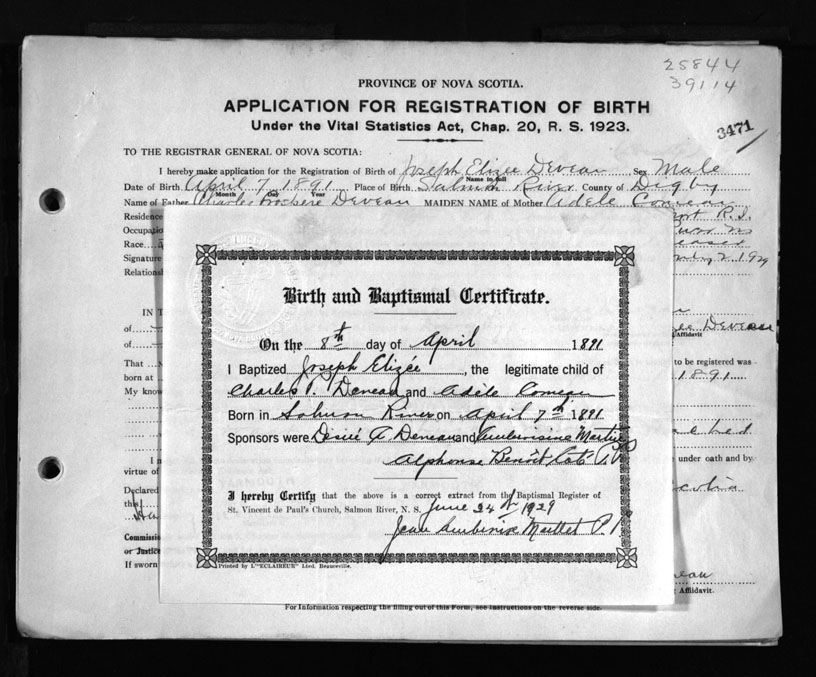 25844
39114
PROVINCE OF NOVA SCOTIA.
APPLICATION FOR REGISTRATION OF BIRTH
Under the Vital Statistics Act, Chap. 20, R. S. 1923.
3471
TO THE REGISTRAR GENERAL OF NOVA SCOTIA:
I hereby make application for the Registration of Birth of Joseph Elizee Deveau Sex Male
Name in full
Date of Birth April 7, 1891 Place of Birth Salmon River County of Digby
Month Day Year
Name of Father Charles Deveau MAIDEN NAME of Mother Adele Comeau
Residence
Occupatio
Race
Signature 2, 1929
Relations
Birth and Baptismal Certificate.
On the 8th day of April 1891
I Baptized Joseph Elizée, the legitimate child of
Charles P. Deveau and Adile Comeau
Born in Salmon River on April 7th 1891
Sponsors were Deveau and
Alphonse Benôit
I hereby Certify that the above is a correct extract from the Baptismal Register of
St. Vincent de Paul's Church, Salmon River, N. S. June 24th 1929
Printed by L'"ECLAIREUR" Lted. Beauceville.
IN T
of
of Deveau
Affidavit
That to be registered was
born at 1891.
My know
I under oath and by
virtue of
Declared
this
Commissi
or Justice
If sworn
Affidavit.
For Information respecting the filling out of this Form, see instructions on the reverse side.